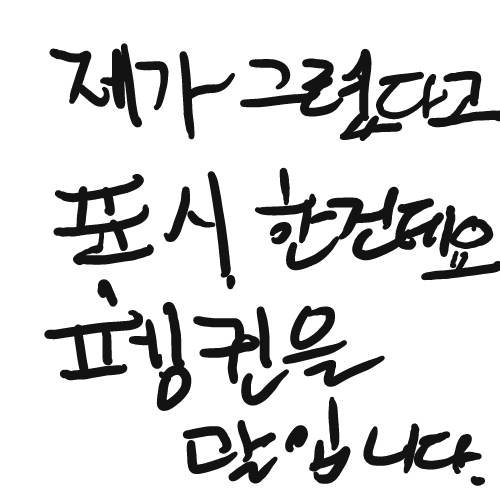 제가 그렸다고
표시 한건데요
펭귄을
말입니다.